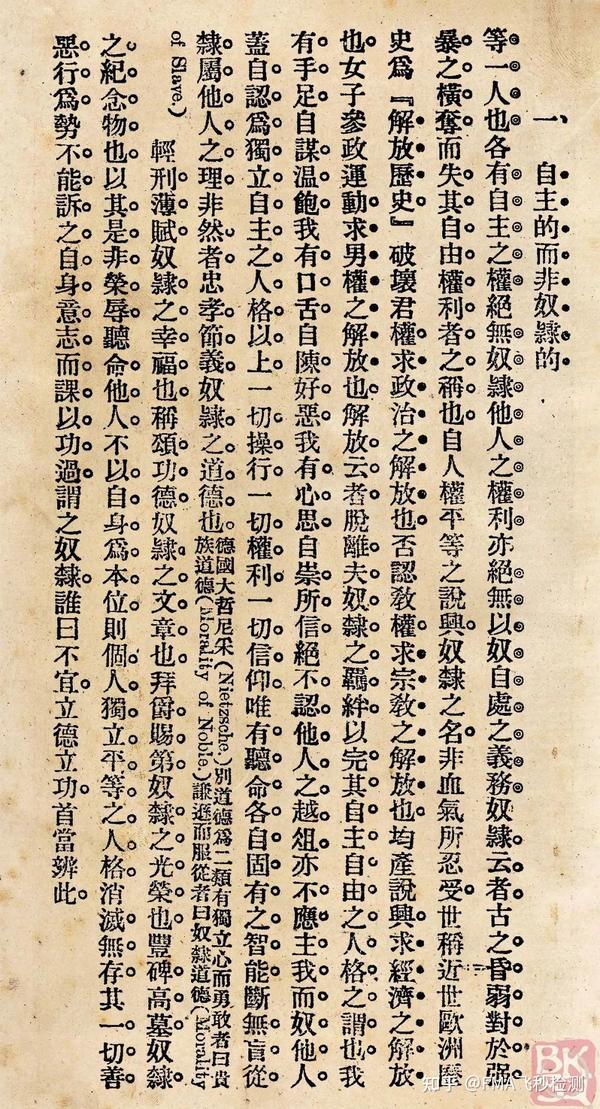 一、自主的而非奴隸的
等一人也各有自主之權絕無奴隸他人之權利亦絕無以奴自處之義務奴隸云者古之昏弱對於强
暴之橫奪而失其自由權利者之稱也自人權平等之說興奴隸之名非血氣所忍受世稱近世歐洲歷
史爲『解放歷史』破壞君權求政治之解放也否認教權求宗教之解放也均產說興求經濟之解放
也女子參政運動求男權之解放也解放云者脫離夫奴隸之羈絆以完其自主自由之人格之謂也我
有手足自謀温飽我有口舌自陳好惡我有心思自崇所信絕不認他人之越俎亦不應主我而奴他人
蓋自認爲獨立自主之人格以上一切操行一切權利一切信仰唯有聽命各自固有之智能斷無盲從
隸屬他人之理非然者忠孝節義奴隸之道德也德國大哲尼采(Nietzsche.)別道德爲二類有獨立心而勇敢者曰貴
族道德(Morality of Noble.)謙遜而服從者曰奴隸道德(Morality
of Slave.)
輕刑薄賦奴隸之幸福也稱頌功德奴隸之文章也拜爵賜第奴隸之光榮也豐碑高墓奴隸
之紀念物也以其是非榮辱聽命他人不以自身爲本位則個人獨立平等之人格消滅無存其一切善
惡行爲勢不能訴之自身意志而課以功過謂之奴隸誰曰不宜立德立功首當辨此。
知乎 @FMA飞秒检测
BK